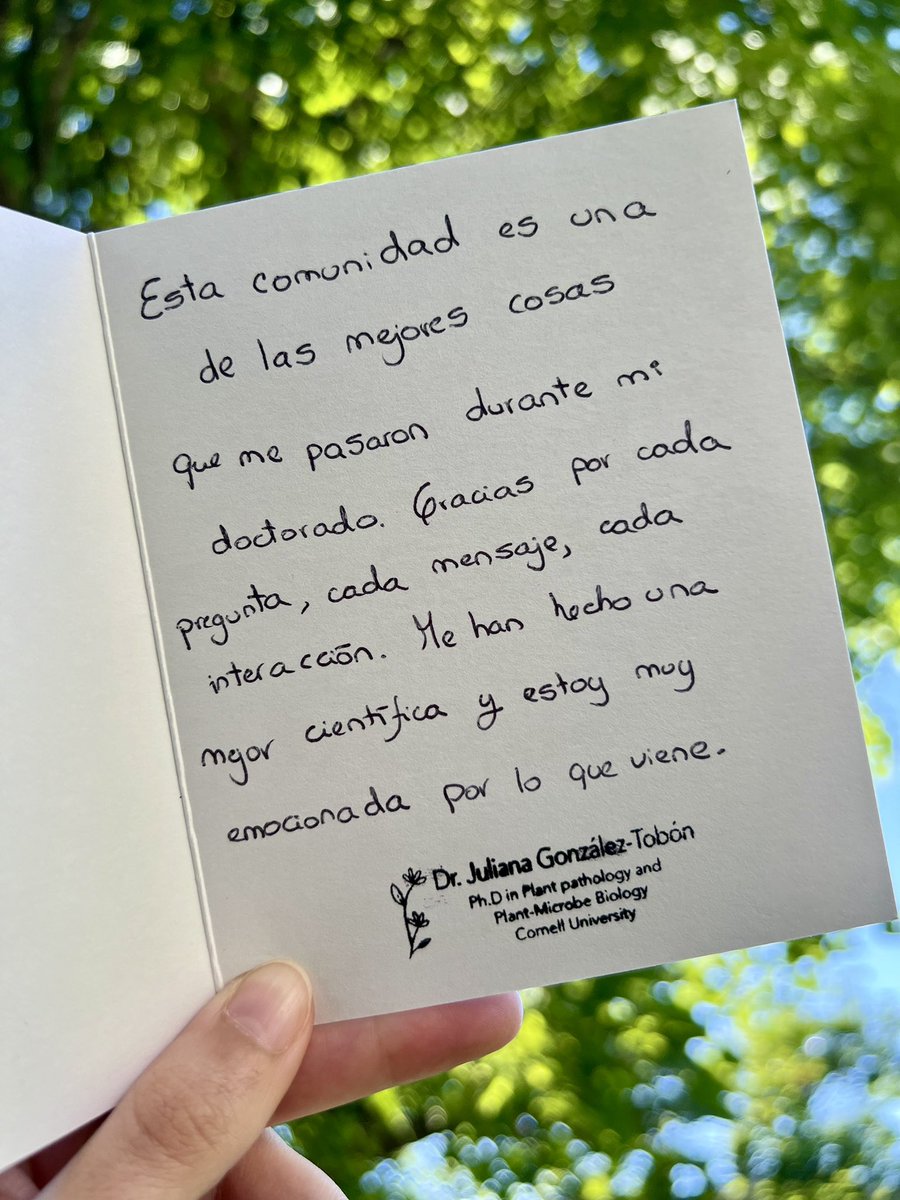 Esta comunidad es una
de las mejores cosas
que me pasaron durante mi
doctorado. Gracias por cada
pregunta, cada mensaje, cada
interacción. Me han hecho una
mejor científica y estoy muy
emocionada por lo que viene.
Dr. Juliana González-Tobón
Ph.D in Plant pathology and
Plant-Microbe Biology
Cornell University